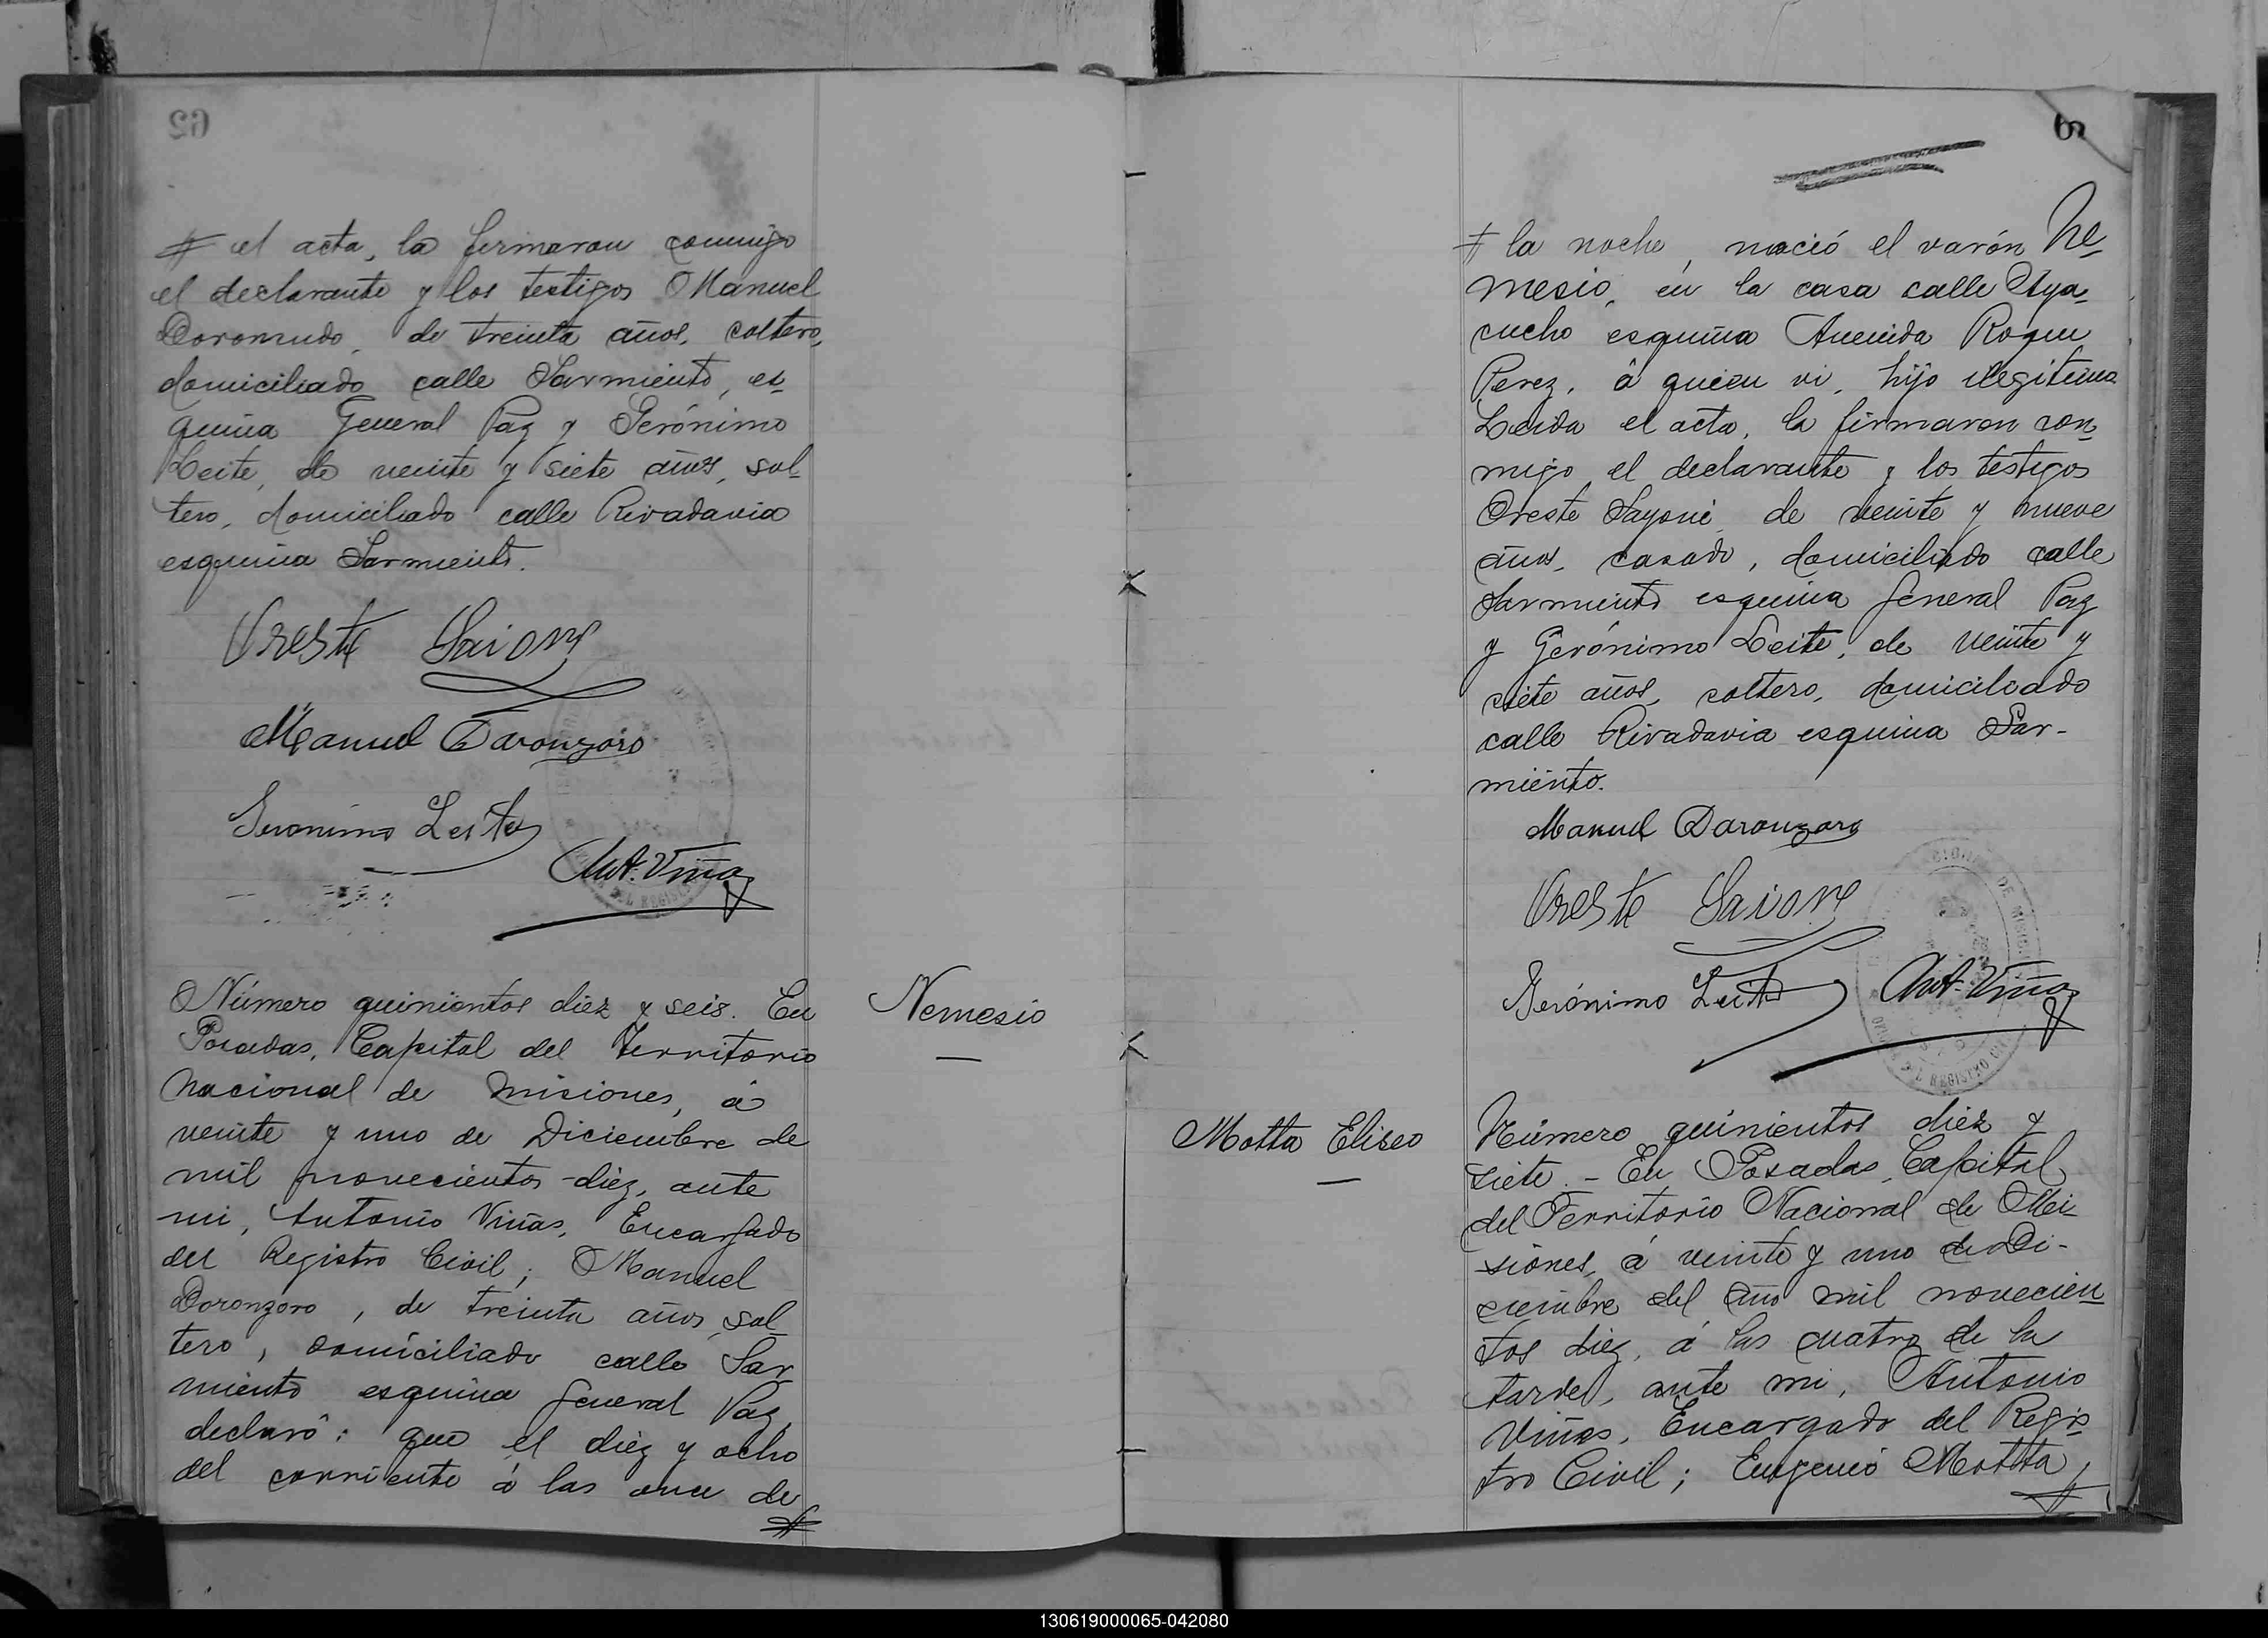 62
# el acta, la firmaron conmigo
el declarante y los testigos Manuel
Doronzoro, de treinta años, soltero,
domiciliado calle Sarmiento, es
quina General Paz y Gerónimo
Leite, de veinte y siete años, sol
tero, domiciliado calle Rivadavia
esquina Sarmiento.
Oreste Saione
Manuel Daronzoro
Geronimo Leite
Ant. Viñas
Número quinientos diez y seis. En
Posadas, Capital del Territorio
Nacional de Misiones, á
veinte y uno de Diciembre de
mil novecientos diez, ante
mi, Antonio Viñas, Encargado
del Registro Civil; Manuel
Doronzoro, de treinta años, sol
tero, domiciliado calle Sar
miento esquina General Paz,
declaró: que el diez y ocho
del corriente á las once de
#
Nemesio
# la noche, nació el varón Ne
mesio, en la casa calle Aya
cucho esquina Avenida Roque
Perez, á quien vi, hijo ilegitimo
Leida el acta, la firmaron con
migo el declarante y los testigos
Oreste Sayoni de veinte y nueve
años, casado, domiciliado calle
Sarmiento esquina General Paz
y Gerónimo Leite, de veinte y
siete años, soltero, domiciliado
calle Rivadavia esquina Sar-
miento.
Manuel Daronzoro
Oreste Saione
Gerónimo Leite
Ant. Viñas
Motta Eliseo
Número quinientos diez y
siete.- En Posadas, Capital
del Territorio Nacional de Mi
siones, á veinte y uno de Di-
ciembre del año mil novecien
tos diez, á las cuatro de la
tarde, ante mi, Antonio
Viñas, Encargado del Regis
tro Civil; Eugenio Motta,
#
130619000065-042080